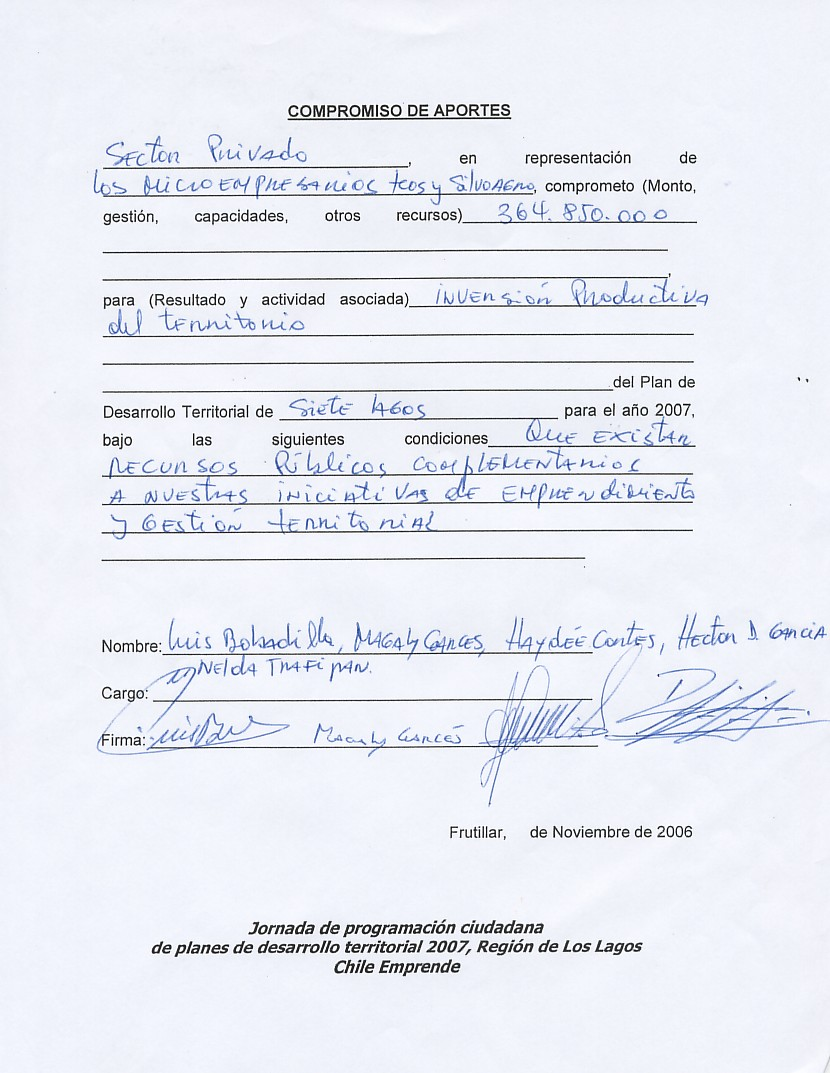 COMPROMISO DE APORTES
Sector Privado, en representación de
los microempresarios tcos y Silvoagro, comprometo (Monto,
gestión, capacidades, otros recursos) 364.850.000
,
para (Resultado y actividad asociada) inversión Productiva
del territorio
del Plan de
Desarrollo Territorial de Siete Lagos para el año 2007,
bajo las siguientes condiciones Que existan
recursos Públicos complementarios
a nuestras iniciativas de emprendimiento
y Gestión territorial
Nombre: Luis Bobadilla, Magaly Garces, Haydée Cortes, Hector D. Garcia
y Nelda Trafipan.
Cargo:
Firma: Magaly Garcés
Frutillar, de Noviembre de 2006
Jornada de programación ciudadana
de planes de desarrollo territorial 2007, Región de Los Lagos
Chile Emprende